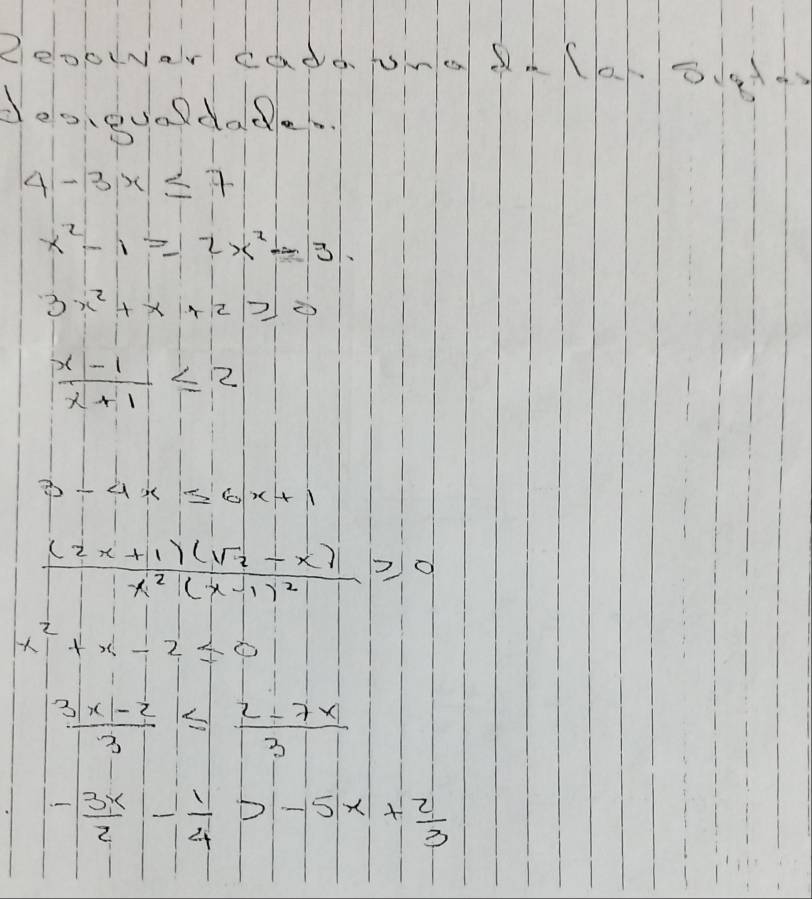 Resolver cada una de las sigtes
desigualdades.
4 - 3x ≤ 7
x² - 1 ≥ 2x² - 3.
3x² + x + 2 ≥ 0
(x - 1)/(x + 1) ≤ 2
3 - 4x ≤ 6x + 1
((2x + 1)(√2 - x))/(x²(x - 1)²) ≥ 0
x² + x - 2 ≤ 0
(3x - 2)/3 ≤ (2 - 7x)/3
-3x/2 - 1/4 > -5x + 2/3